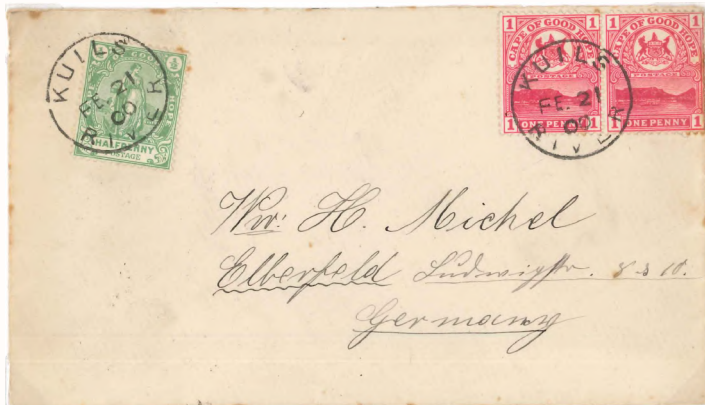 KUILS RIVER
FE. 21
00
OF GOOD HOPE
HALFPENNY
POSTAGE
1 1
CAPE OF GOOD HOPE
POSTAGE
1 ONE PENNY
KUILS RIVER
FE. 21
00
1 1
CAPE OF GOOD HOPE
POSTAGE
ONE PENNY 1
Ww: H. Michel
Elberfeld Ludwigstr.
Germany